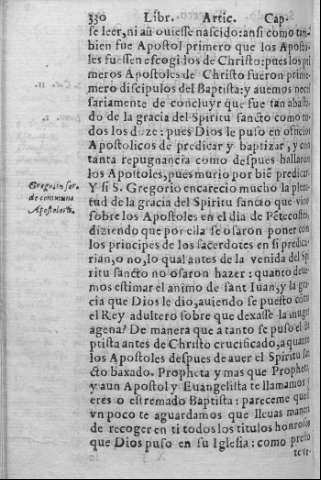 330 Libr. Artic. Cap.
se leer, ni aũ ouiesse nascido: ansi como tam
bien fue Apostol primero que los Aposto
les fuessen escogidos de Christo: pues los pri
meros Apostoles de Christo fueron prime
ro discipulos del Baptista: y auemos neces
sariamente de concluyr que fue tan abasta
do de la gracia del Spiritu sancto como to
dos los doze: pues Dios le puso en officios
Apostolicos de predicar y baptizar, y con
tanta repugnancia como despues hallaron
los Apostoles, pues murio por biẽ predicar.
Y si S. Gregorio encarecio mucho la pleni
tud de la gracia del Spiritu sancto que vino
sobre los Apostoles en el dia de Pẽtecoste,
diziendo que por ella se osaron poner con
los principes de los sacerdotes en si predica
rian, o no, lo qual antes de la venida del Spi
ritu sancto no osaron hazer: quanto deue
mos estimar el animo de sant Iuan, y la gra
cia que Dios le dio, auiendo se puesto con
el Rey adultero sobre que dexasse la muger
agena? De manera que a tanto se puso el Ba
ptista antes de Christo crucificado, a quanto
los Apostoles despues de auer el Spiritu san
cto baxado. Propheta y mas que Propheta,
y aun Apostol y Euangelista te llamamos
eres o estremado Baptista: pareceme que
vn poco te aguardamos que lleuas manera
de recoger en ti todos los titulos honrosos
que Dios puso en su Iglesia: como presto
Gregorius ser.
de communi
Apostolorũ.